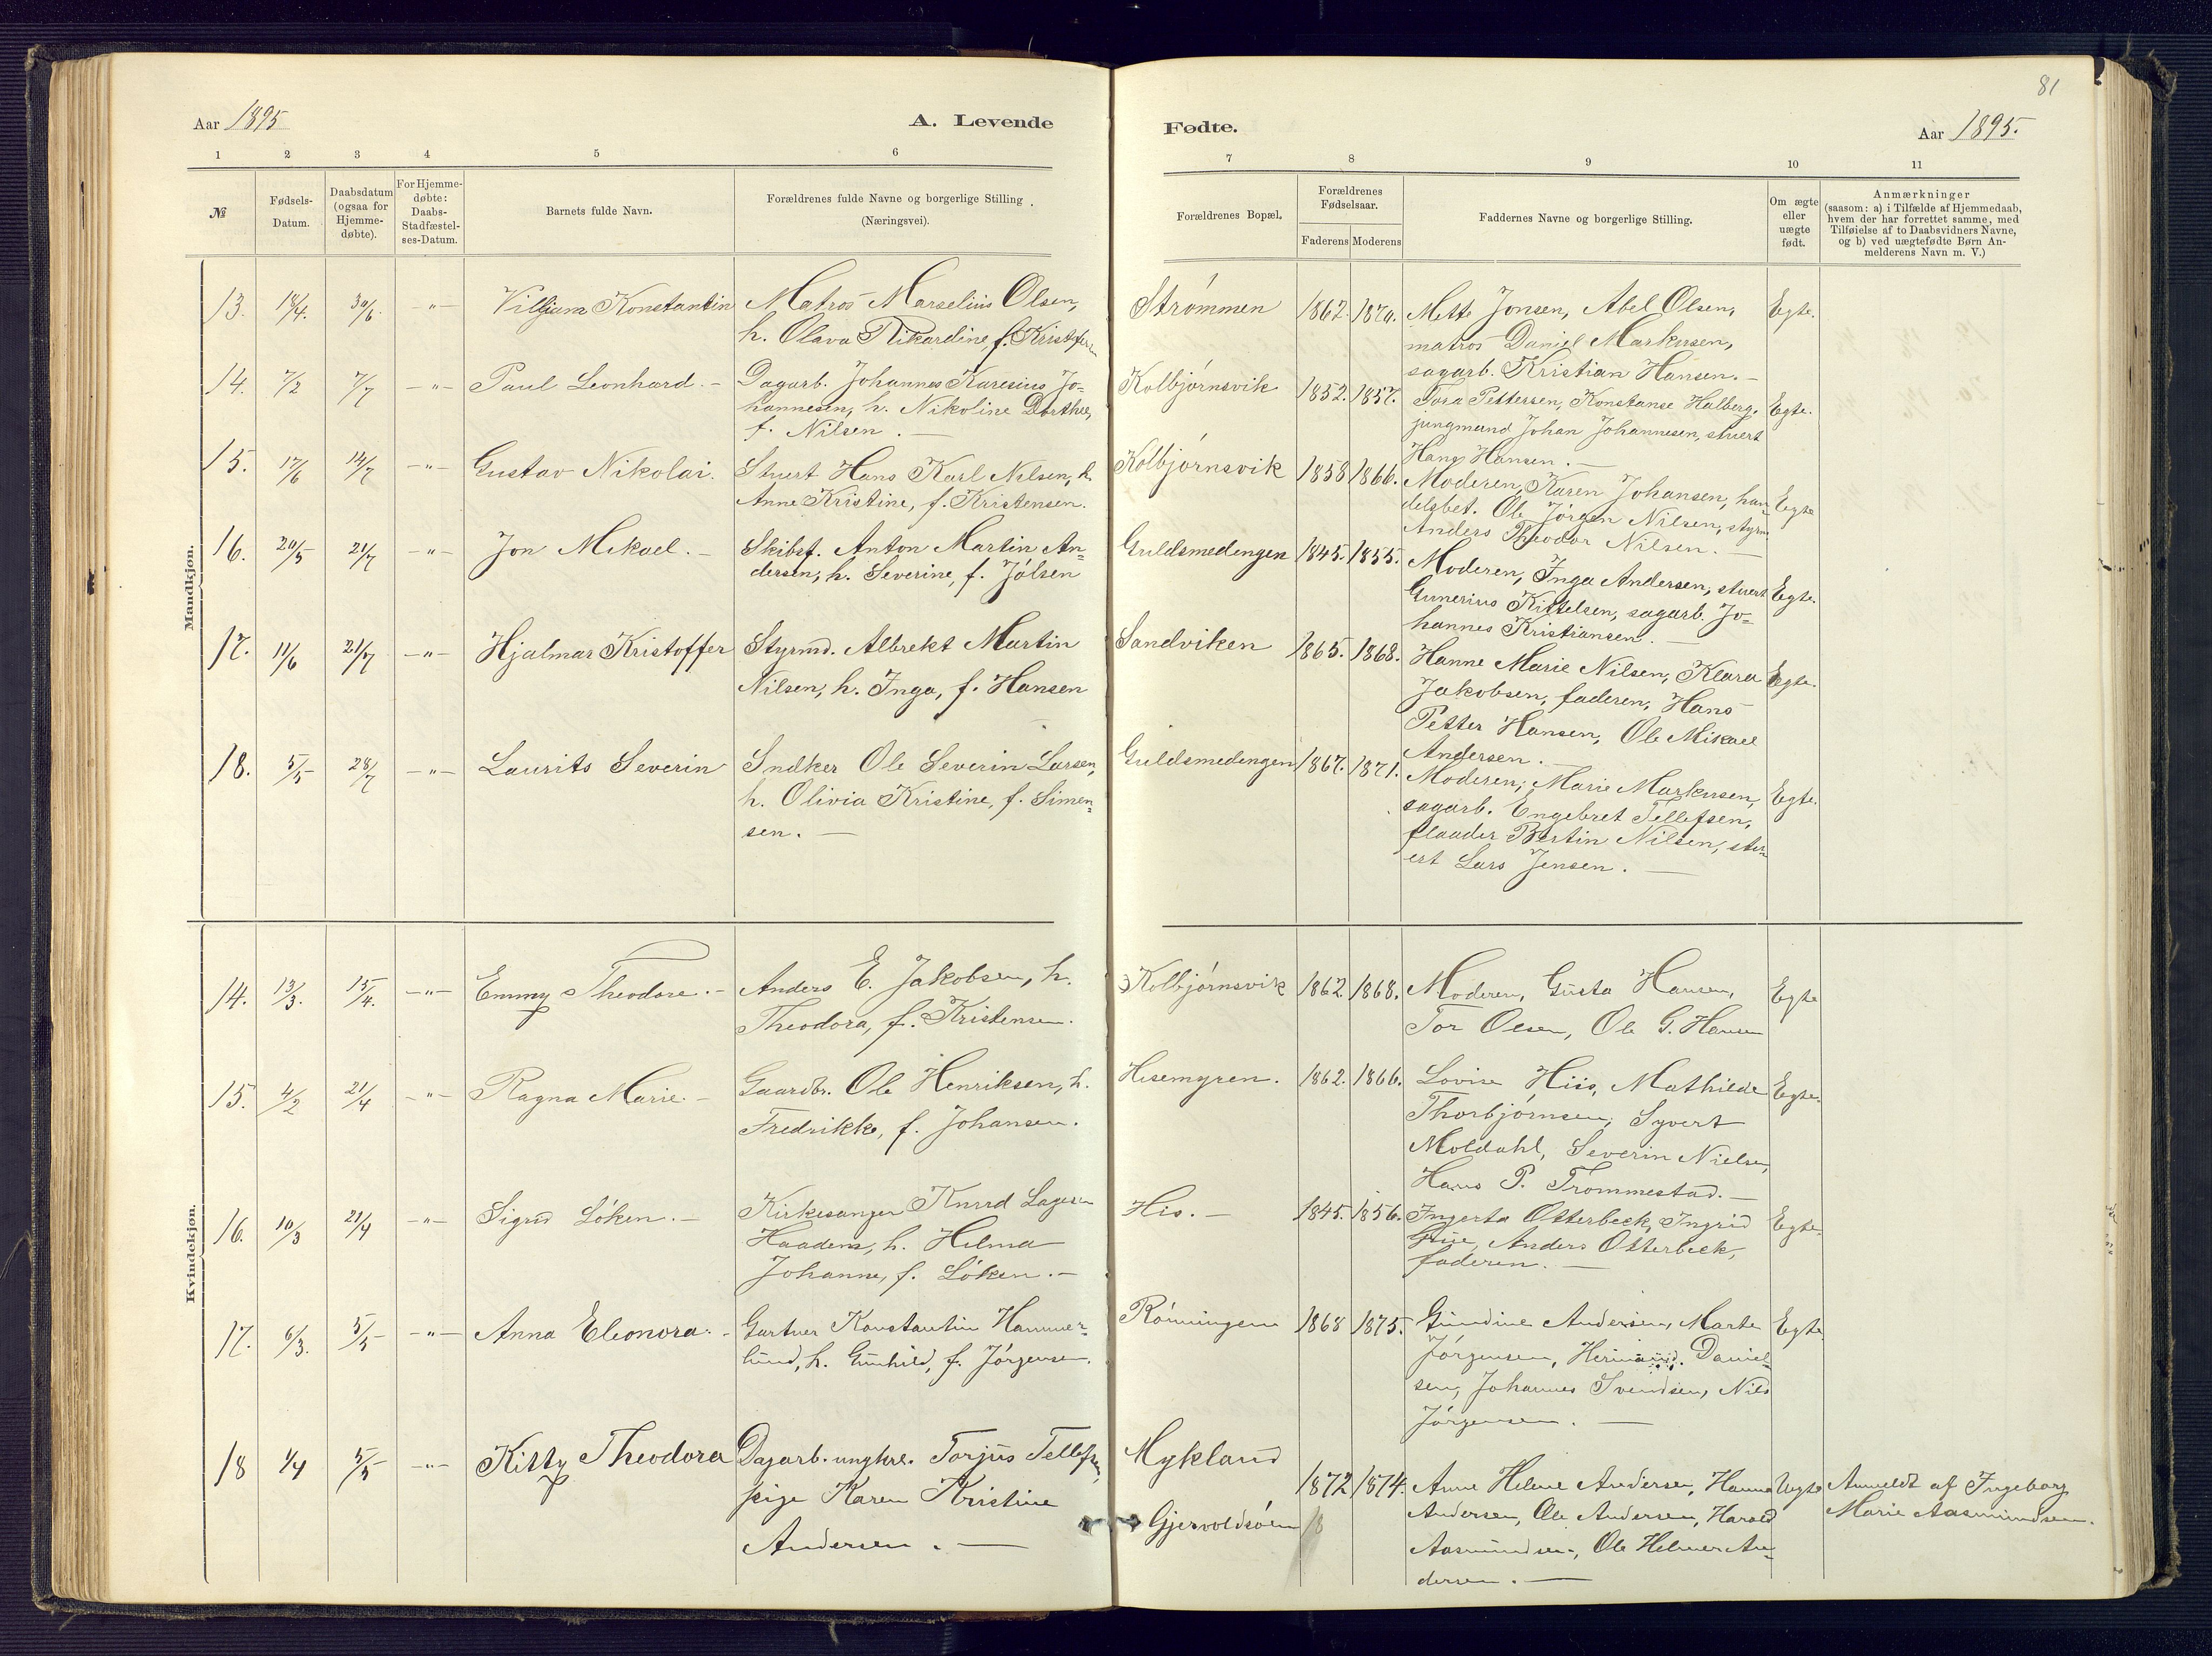 81
Aar 1895
A. Levende
Fødte.
Aar 1895.
1 2 3 4 5 6
7 8 9 10 11
№
Fødsels-
Datum.
Daabsdatum
(ogsaa for
Hjemme-
døbte).
For Hjemme-
døbte:
Daabs-
Stadfæstel-
ses-Datum.
Barnets fulde Navn.
Forældrenes fulde Navne og borgerlige Stilling
(Næringsvei).
Forældrenes Bopæl.
Forældrenes
Fødselsaar.
Faderens Moderens
Faddernes Navne og borgerlige Stilling.
Om ægte
eller
uægte
født.
Anmærkninger
(saasom: a) i Tilfælde af Hjemmedaab,
hvem der har forrettet samme, med
Tilføielse af to Daabsvidners Navne,
og b) ved uægtefødte Børn An-
melderens Navn m. V.)
Mandkjøn.
13. 18/4. 30/6. -"- Viljum Konstantin
Matros Marselius Olsen,
h. Olava Rikardine, f. Kristofersen
Strømmen 1862. 1870.
Mette Jonsen, Abel Olsen,
matros Daniel Markusen,
sagarb. Kristian Hansen. -
Egte.
14. 7/2 7/7 -"- Paul Leonhard. -
Dagarb. Johannes Karesius Jo-
hannesen, h. Nikoline Dorthea,
f. Nilsen. -
Kolbjørnsvik 1852. 1857.
Tora Pettersen, Konstanse Halberg,
jungmand Johan Johannesen, stuert
Hans Hansen. -
Egte.
15. 17/6 14/7 -"- Gustav Nikolai.
Stuert Hans Karl Nilsen, h.
Anne Kristine, f. Kristensen.
Kolbjørnsvik 1858 1866.
Moderen, Karen Johansen, han
delsbet. Ole Jörgen Nilsen, styrm.
Anders Theodor Nilsen. -
Egte
16. 20/5 21/7 -"- Jon Mikael. -
Skibsf. Anton Martin An-
dersen, h. Severine, f. Jölsen
Guldsmedengen 1845. 1855.
Moderen, Inga Andersen, stuert
Gunerius Kittelsen, sagarb. Jo-
hannes Kristiansen. -
Egte.
17. 11/6 21/7 -"- Hjalmar Kristoffer
Styrmd. Albrekt Martin
Nilsen, h. Inga, f. Hansen
Sandviken 1865. 1868.
Hanne Marie Nilsen, Klara
Jakobsen, faderen, Hans
Petter Hansen, Ole Mikael
Andersen. -
Egte.
18. 5/5 28/7 -"- Laurits Severin
Sndker Ole Severin Larsen,
h. Olivia Kristine, f. Simen-
sen. -
Guldsmedengen 1867. 1871.
Moderen, Marie Markusen,
sagarb. Engebret Tellefsen,
flaader Bertin Nilsen, stu-
ert Lars Jensen. -
Egte.
Kvindekjøn.
14. 13/3. 15/4. -"- Emmy Theodore. -
Anders E. Jakobsen, h.
Theodora, f. Kristensen.
Kolbjørnsvik 1862. 1868.
Moderen, Gusta Hansen,
Tor Olsen, Ole G. Hansen
Egte
15. 4/2 21/4 -"- Ragna Marie. -
Gaardbr. Ole Henriksen, h.
Fredrikke, f. Johansen.
Hisemyren. 1862. 1866.
Lovise Hiis, Mathilde
Thorbjørnsen, Syvert
Moldahl, Severin Nielsen,
Hans P. Trommestad. -
Egte.
16. 10/3 21/4 -"- Sigrid Löken. -
Kirkesanger Knud Lagesen
Haadem, h. Helma
Johanne, f. Löken. -
His. - 1845. 1856.
Ingerta Otterbeck, Ingrid
Anders Otterbeck,
faderen. -
Egte.
17. 6/3. 5/5 -"- Anna Eleonora. -
Gartner Konstantin Hammer-
lund, h. Gunhild, f. Jörgensen.
Rönningen 1868 1875.
Gundine Andersen, Marte
Jörgensen, Hermand. Daniel-
sen, Johannes Svendsen, Nils
Jörgensen. -
Egte.
18 1/4 5/5 -"- Kitty Theodora
Dagarb. ungkrl. Torjus Tellefsen,
pige Karen Kristine
Andersen. -
Mykland
Gjervoldsöen
1872 1874.
Anne Helene Andersen, Hanna
Andersen, Ole Andersen, Harald
Aasmundsen, Ole Helmer An-
dersen. -
Uegte
Anmeldt af Ingeborg
Marie Aasmundsen.